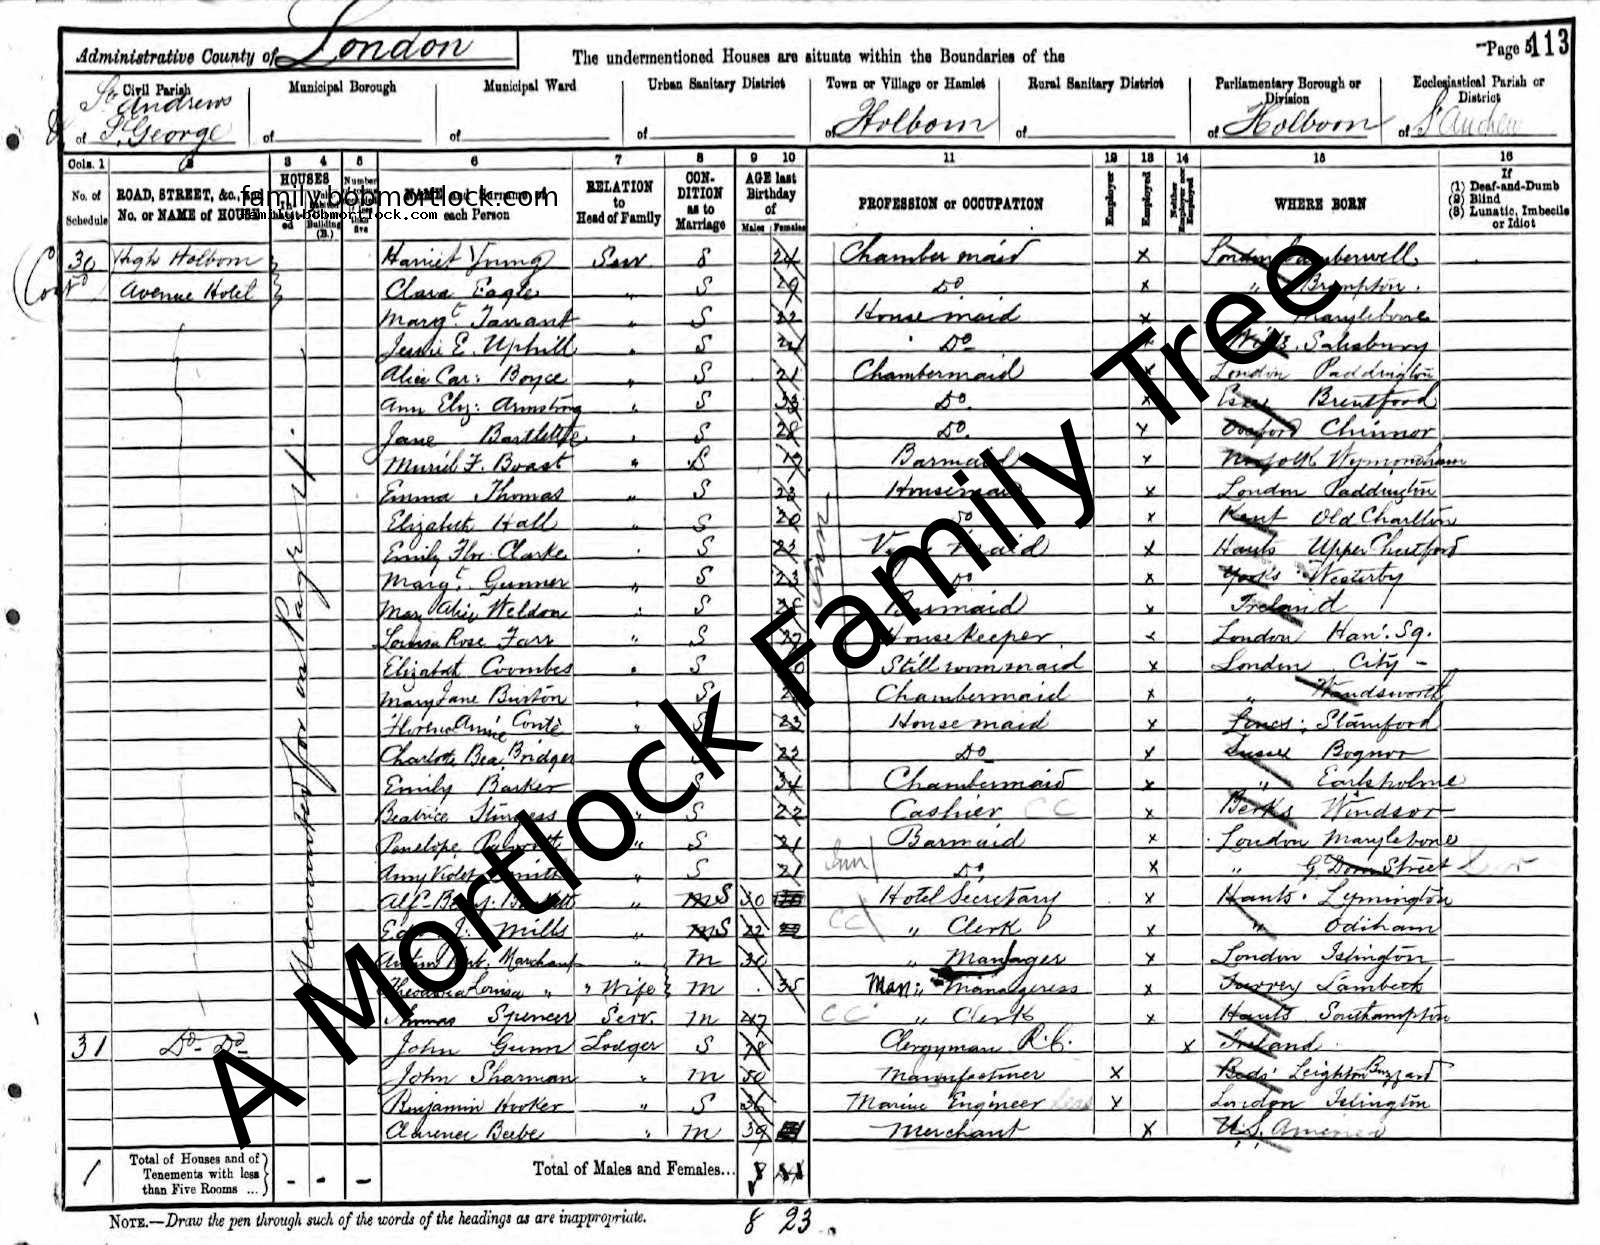 Administrative County of London
The undermentioned Houses are situate within the Boundaries of the
Page 5 113
Civil Parish
Municipal Borough
Municipal Ward
Urban Sanitary District
Town or Village or Hamlet
Rural Sanitary District
Parliamentary Borough or Division
Ecclesiastical Parish or District
St Andrews & of St. George
of
of
of
of Holborn
of
of Holborn
of St Andrew
Cols. 1 2 3 4 5 6 7 8 9 10 11 12 13 14 15 16
No. of Schedule
ROAD, STREET, &c., No. or NAME of HOUSE
HOUSES
NAME and Surname of each Person
RELATION to Head of Family
CONDITION as to Marriage
AGE last Birthday of
Males Females
PROFESSION or OCCUPATION
Employer
Employed
Neither Employer nor Employed
WHERE BORN
If (1) Deaf-and-Dumb (2) Blind (3) Lunatic, Imbecile or Idiot
family.bobmortlock.com
family.bobmortlock.com
(Contd 30 High Holborn Harriet Young Serv S 24 Chamber maid x London Camberwell
Avenue Hotel Clara Eagle " S 29 Do x " Brompton
Margt. Tarrant " S 22 House maid x Marylebone
Jessie E. Uphill " S 24 Do x Wilts. Salisbury
Alice Car: Boyce " S 21 Chambermaid x London Paddington
Ann Eliz: Armstrong " S 33 Do. x Brentford
Jane " S 28 Do. x Oxford Chinnor
Muriel F. Boast " S 19 Barmaid x Norfolk Wymondham
Emma Thomas " S 23 Housemaid x London Paddington
Elizabeth Hall S 20 Do x Kent Old Charlton
Emily Flor. Clarke S 23 maid x Hants Upper
Margt. Gunner " S 23 Do x Yorks Westerby
Mary Alice Weldon " S Barmaid x Ireland
Louisa Rose Farr " S 27 Housekeeper x London Han: Sq.
Elizabeth Coombes " S Stillroommaid x London City
Mary Jane Burton " S Chambermaid x " Wandsworth
Florence Annie Conte " S 23 House maid x Lincs: Stamford
Charlotte Bea. Bridger S 22 Do x Sussex Bognor
Emily Barker S 34 Chambermaid x " Earls holme
Beatrice Sturgess " S 22 Cashier CC x Berks Windsor
Penelope " S 21 Barmaid x London Marylebone
Amy Violet Smith " S 21 Do x " Gt Dom Street
Alfd. Benj. " S 30 Hotel Secretary x Hants. Lymington
J. Mills " S 22 CC " Clerk x " Odiham
Marchant " m 30 " Manager x London Islington
Theodosia Louisa " " Wife m 35 Man: " Manageress x Surrey Lambeth
Thomas Spencer Serv. m 47 CC " Clerk x Hants Southampton
31 Do- Do- John Gunn Lodger S 78 Clergyman R.C. x Ireland
John Sharman " m 50 Manufacturer x Beds' Leighton Buzzard
Benjamin Hooker " S 36 Marine Engineer x London Islington
Clarence Beebe " m 39 Merchant x U.S. America
1 Total of Houses and of Tenements with less than Five Rooms ... - - - Total of Males and Females... 8
NOTE.—Draw the pen through such of the words of the headings as are inappropriate.
8 23
A Mortlock Family Tree